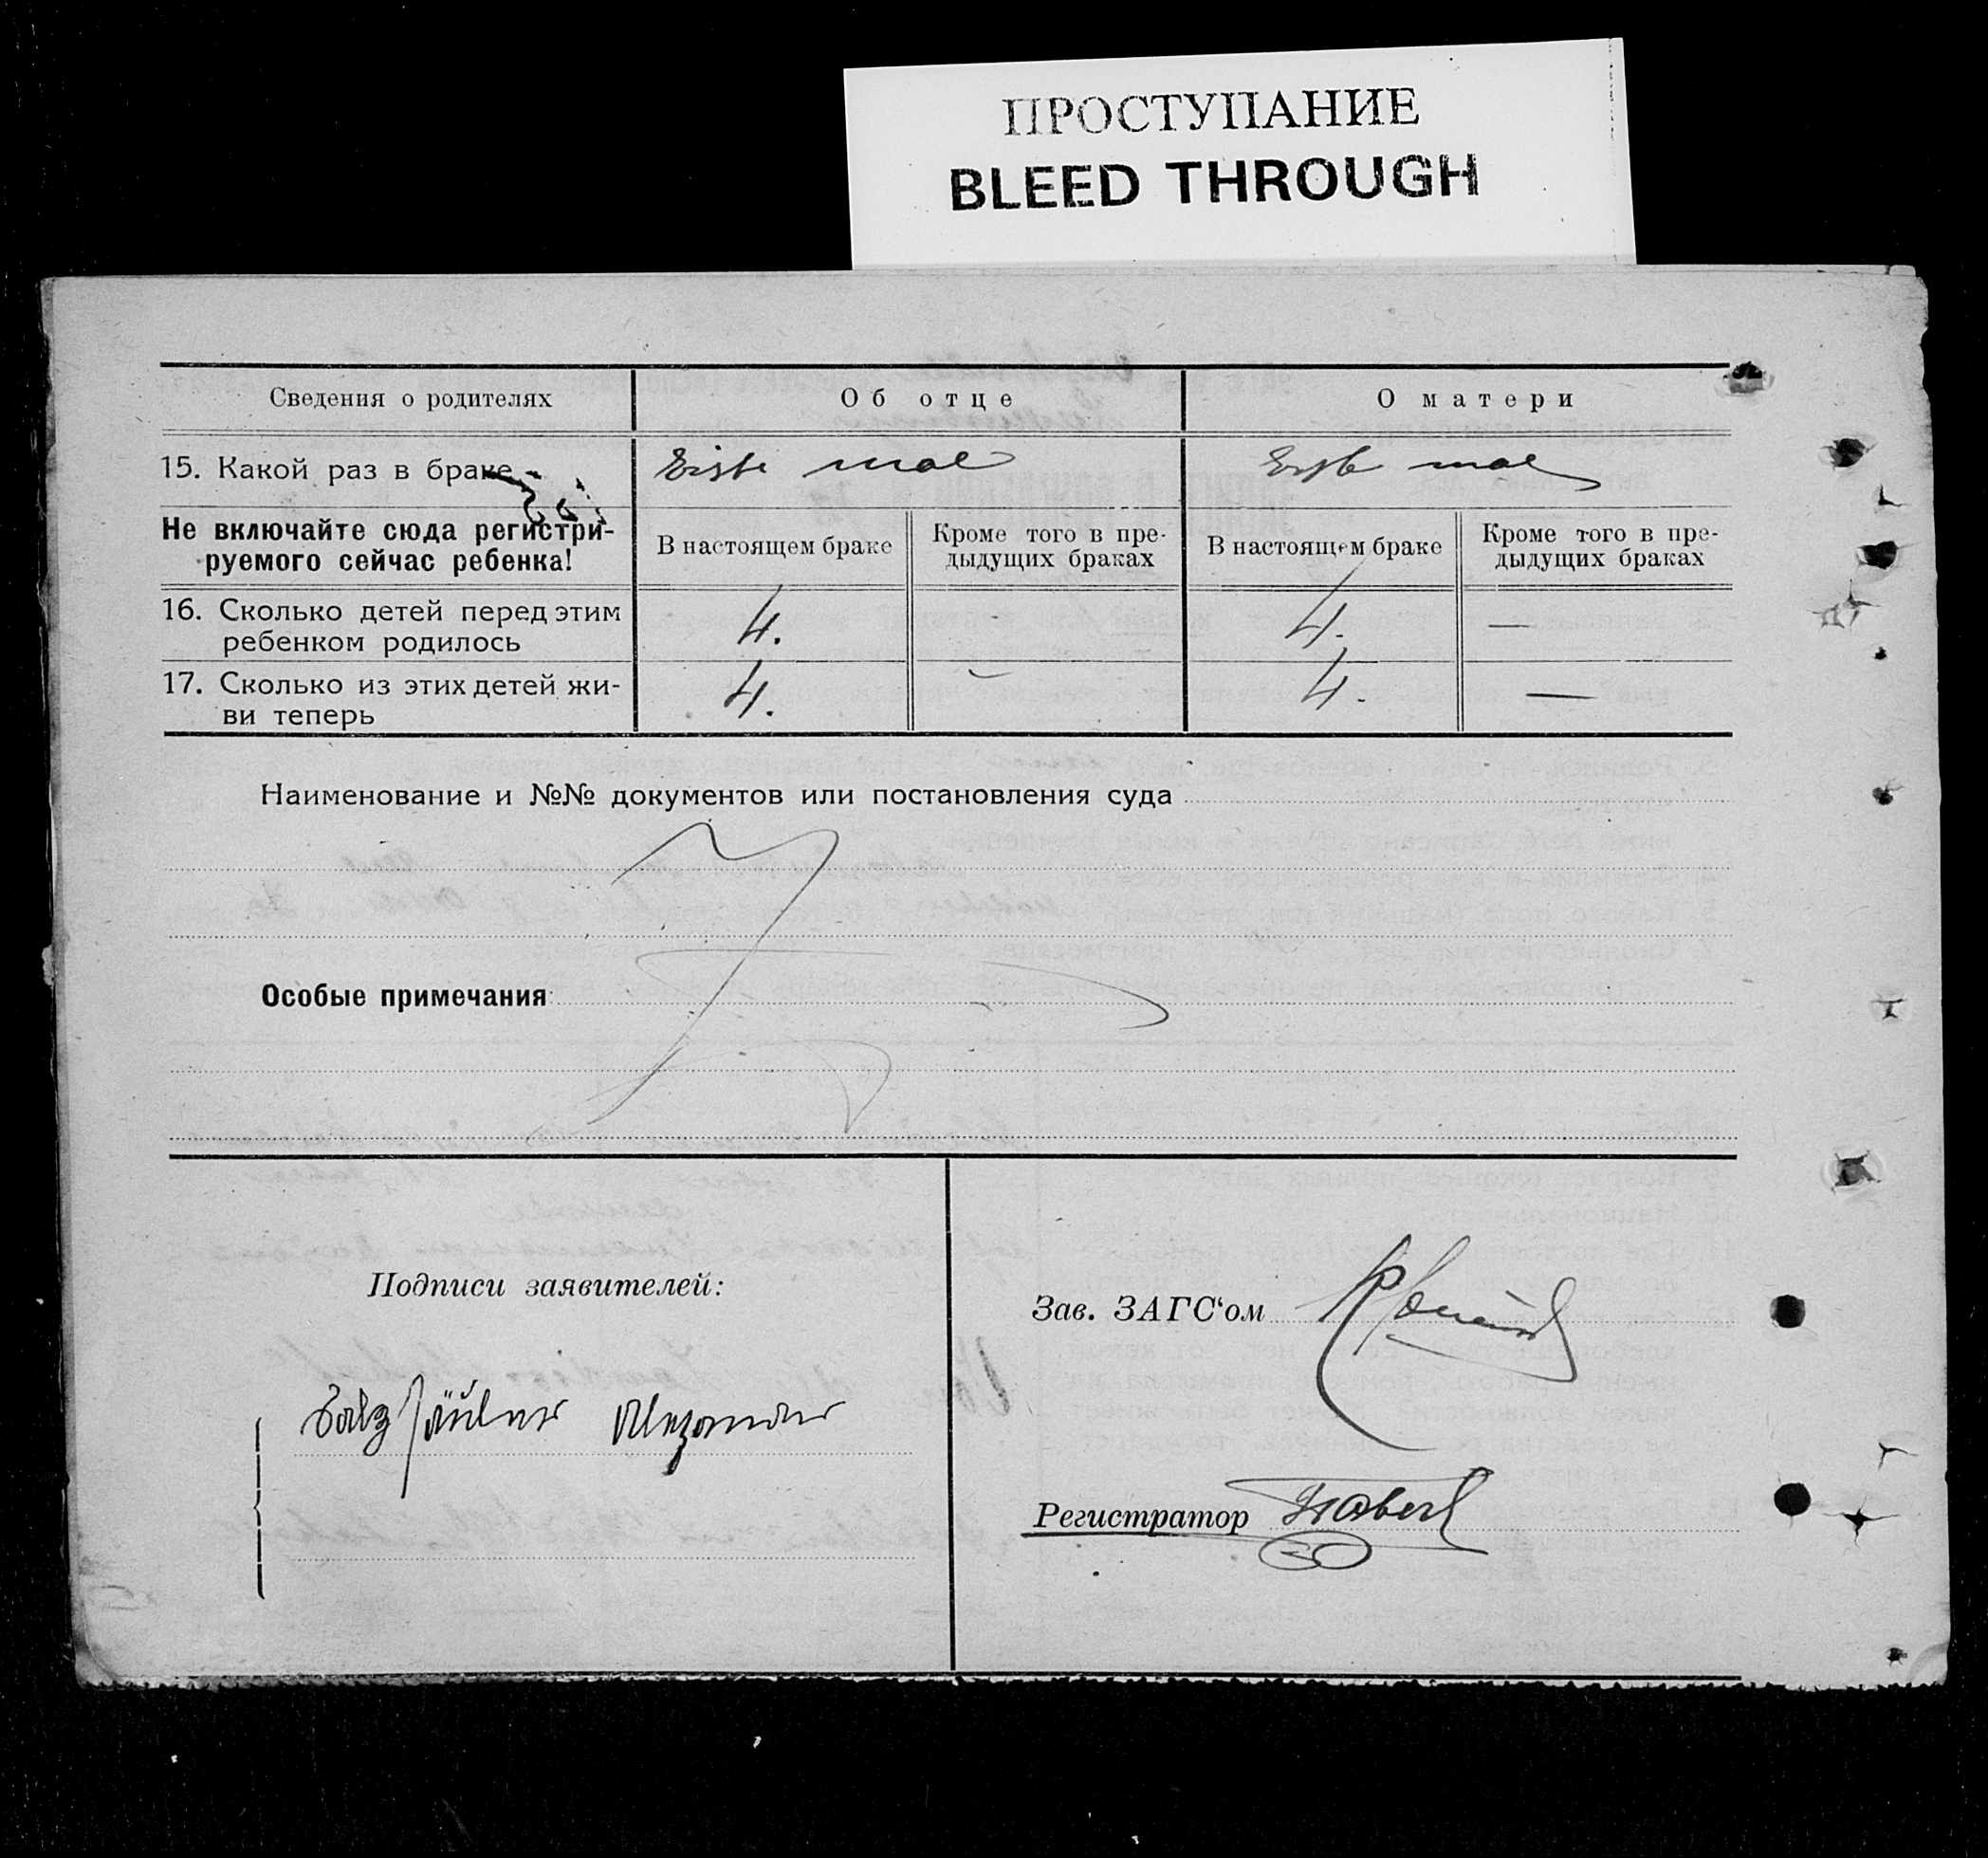 ПРОСТУПАНИЕ
BLEED THROUGH
Сведения о родителях
Об отце
О матери
15. Какой раз в браке
Erste mal
Erste mal
Не включайте сюда регистри-
руемого сейчас ребенка!
В настоящем браке
Кроме того в пре-
дыдущих браках
В настоящем браке
Кроме того в пре-
дыдущих браках
16. Сколько детей перед этим
ребенком родилось
4.
4.
—
17. Сколько из этих детей жи-
ви теперь
4.
—
4.
—
Наименование и №№ документов или постановления суда
Особые примечания
Подписи заявителей:
Зав. ЗАГС‘ом
Alexander
Регистратор